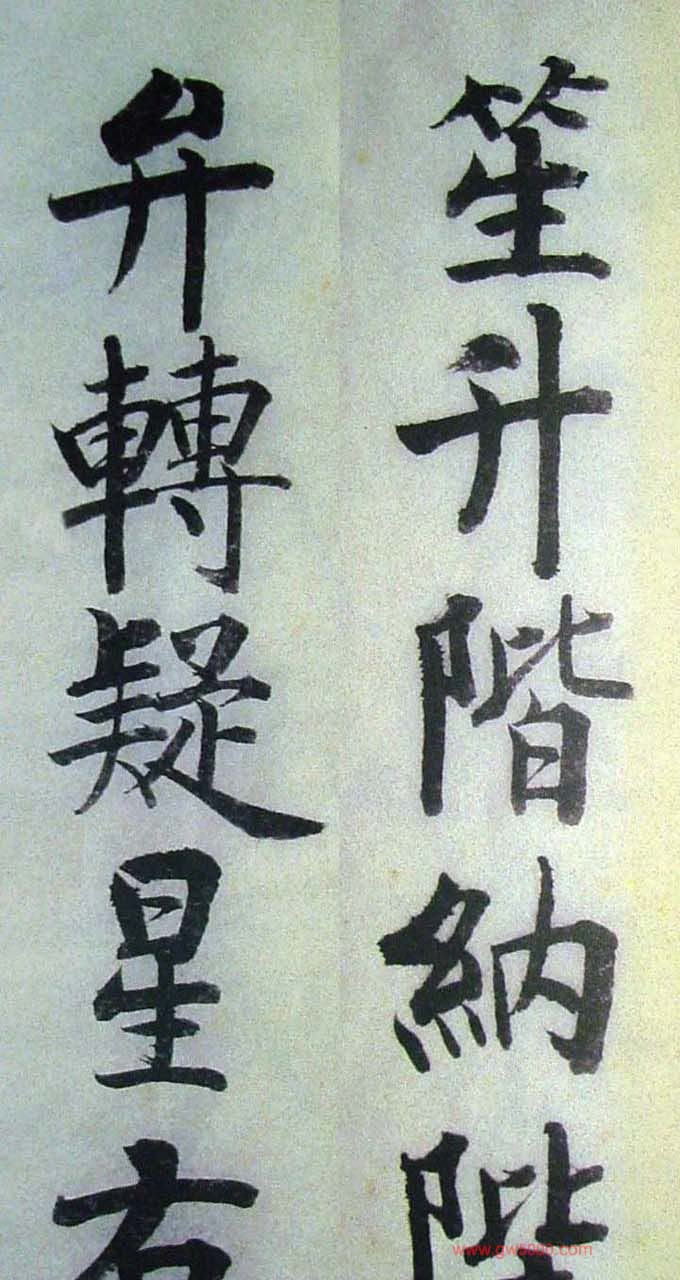 笙升階納陛
弁轉疑星右
www.gw5000.com